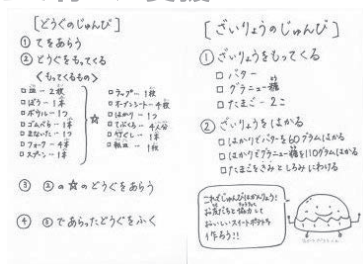 [どうぐのじゅんび]
① てをあらう
② どうぐをもってくる
<もってくるもの>
□ 皿 - 2枚
□ ぼう - 1本
□ ボウル - 1つ
□ ゴムべら - 1本
□ まないた - 1つ
□ フォーク - 4本
□ スプーン - 1本
☆
□ ラップ - 1枚
□ オーブンシート - 4枚
□ はかり - 1つ
□ てぶくろ - 4人分
□ 竹ぐし - 1本
③ ②の☆のどうぐをあらう
④ ③であらったどうぐをふく
[ざいりょうのじゅんび]
① ざいりょうをもってくる
□ バター
□ グラニュー糖
□ たまご - 2こ
② ざいりょうをはかる
□ はかりでバターを60グラムはかる
□ はかりでグラニュー糖を110グラムはかる
□ たまごをきみとしろみにわける
これでじゅんびはかんりょう!
お友だちと協力して
おいしいスイートポテトを
作ろう!!